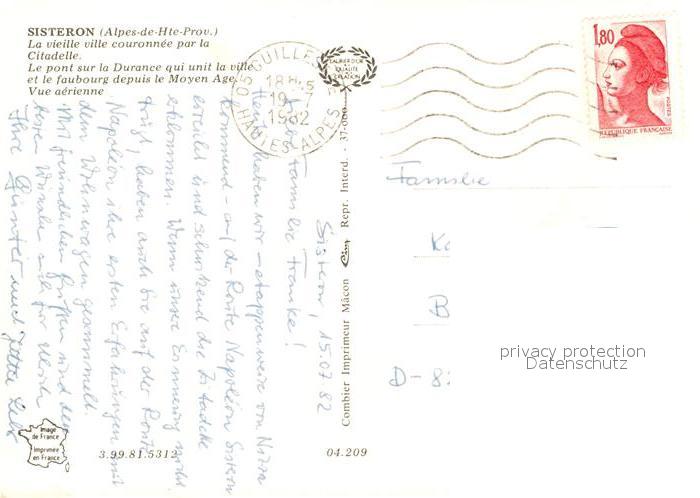 SISTERON (Alpes-de-Hte-Prov.)
La vieille ville couronnée par la
Citadelle.
Le pont sur la Durance qui unit la ville
et le faubourg depuis le Moyen Age.
Vue aérienne
05 GUILLE
18 H
19 - 7
1982
HAUTES-ALPES
LAURIER D'OR
DE LA
QUALITÉ
DE
CRÉATION
1,80
POSTES
REPUBLIQUE FRANÇAISE
Combier Imprimeur Mâcon Cim Repr. Interd. 37-000
Sisteron, 15.07.82
Liebe Familie Franke!
Heute haben wir - etappenweise von Nizza
kommend - auf der Route Napoléon Sisteron
erreicht und die Zitadelle
erklommen. Wenn unsere Erinnerung nicht
trügt, haben auch Sie auf der Route
Napoléon Ihre ersten Erfahrungen mit
dem Wohnwagen gesammelt.
Mit freundlichen Grüßen und den
besten Wünschen auch für Ulrich
Ihre Günter und Jutta
Familie
K
B
D - 8
privacy protection
Datenschutz
Image
de France
Imprimée
en France
3.99.81.5312
04.209